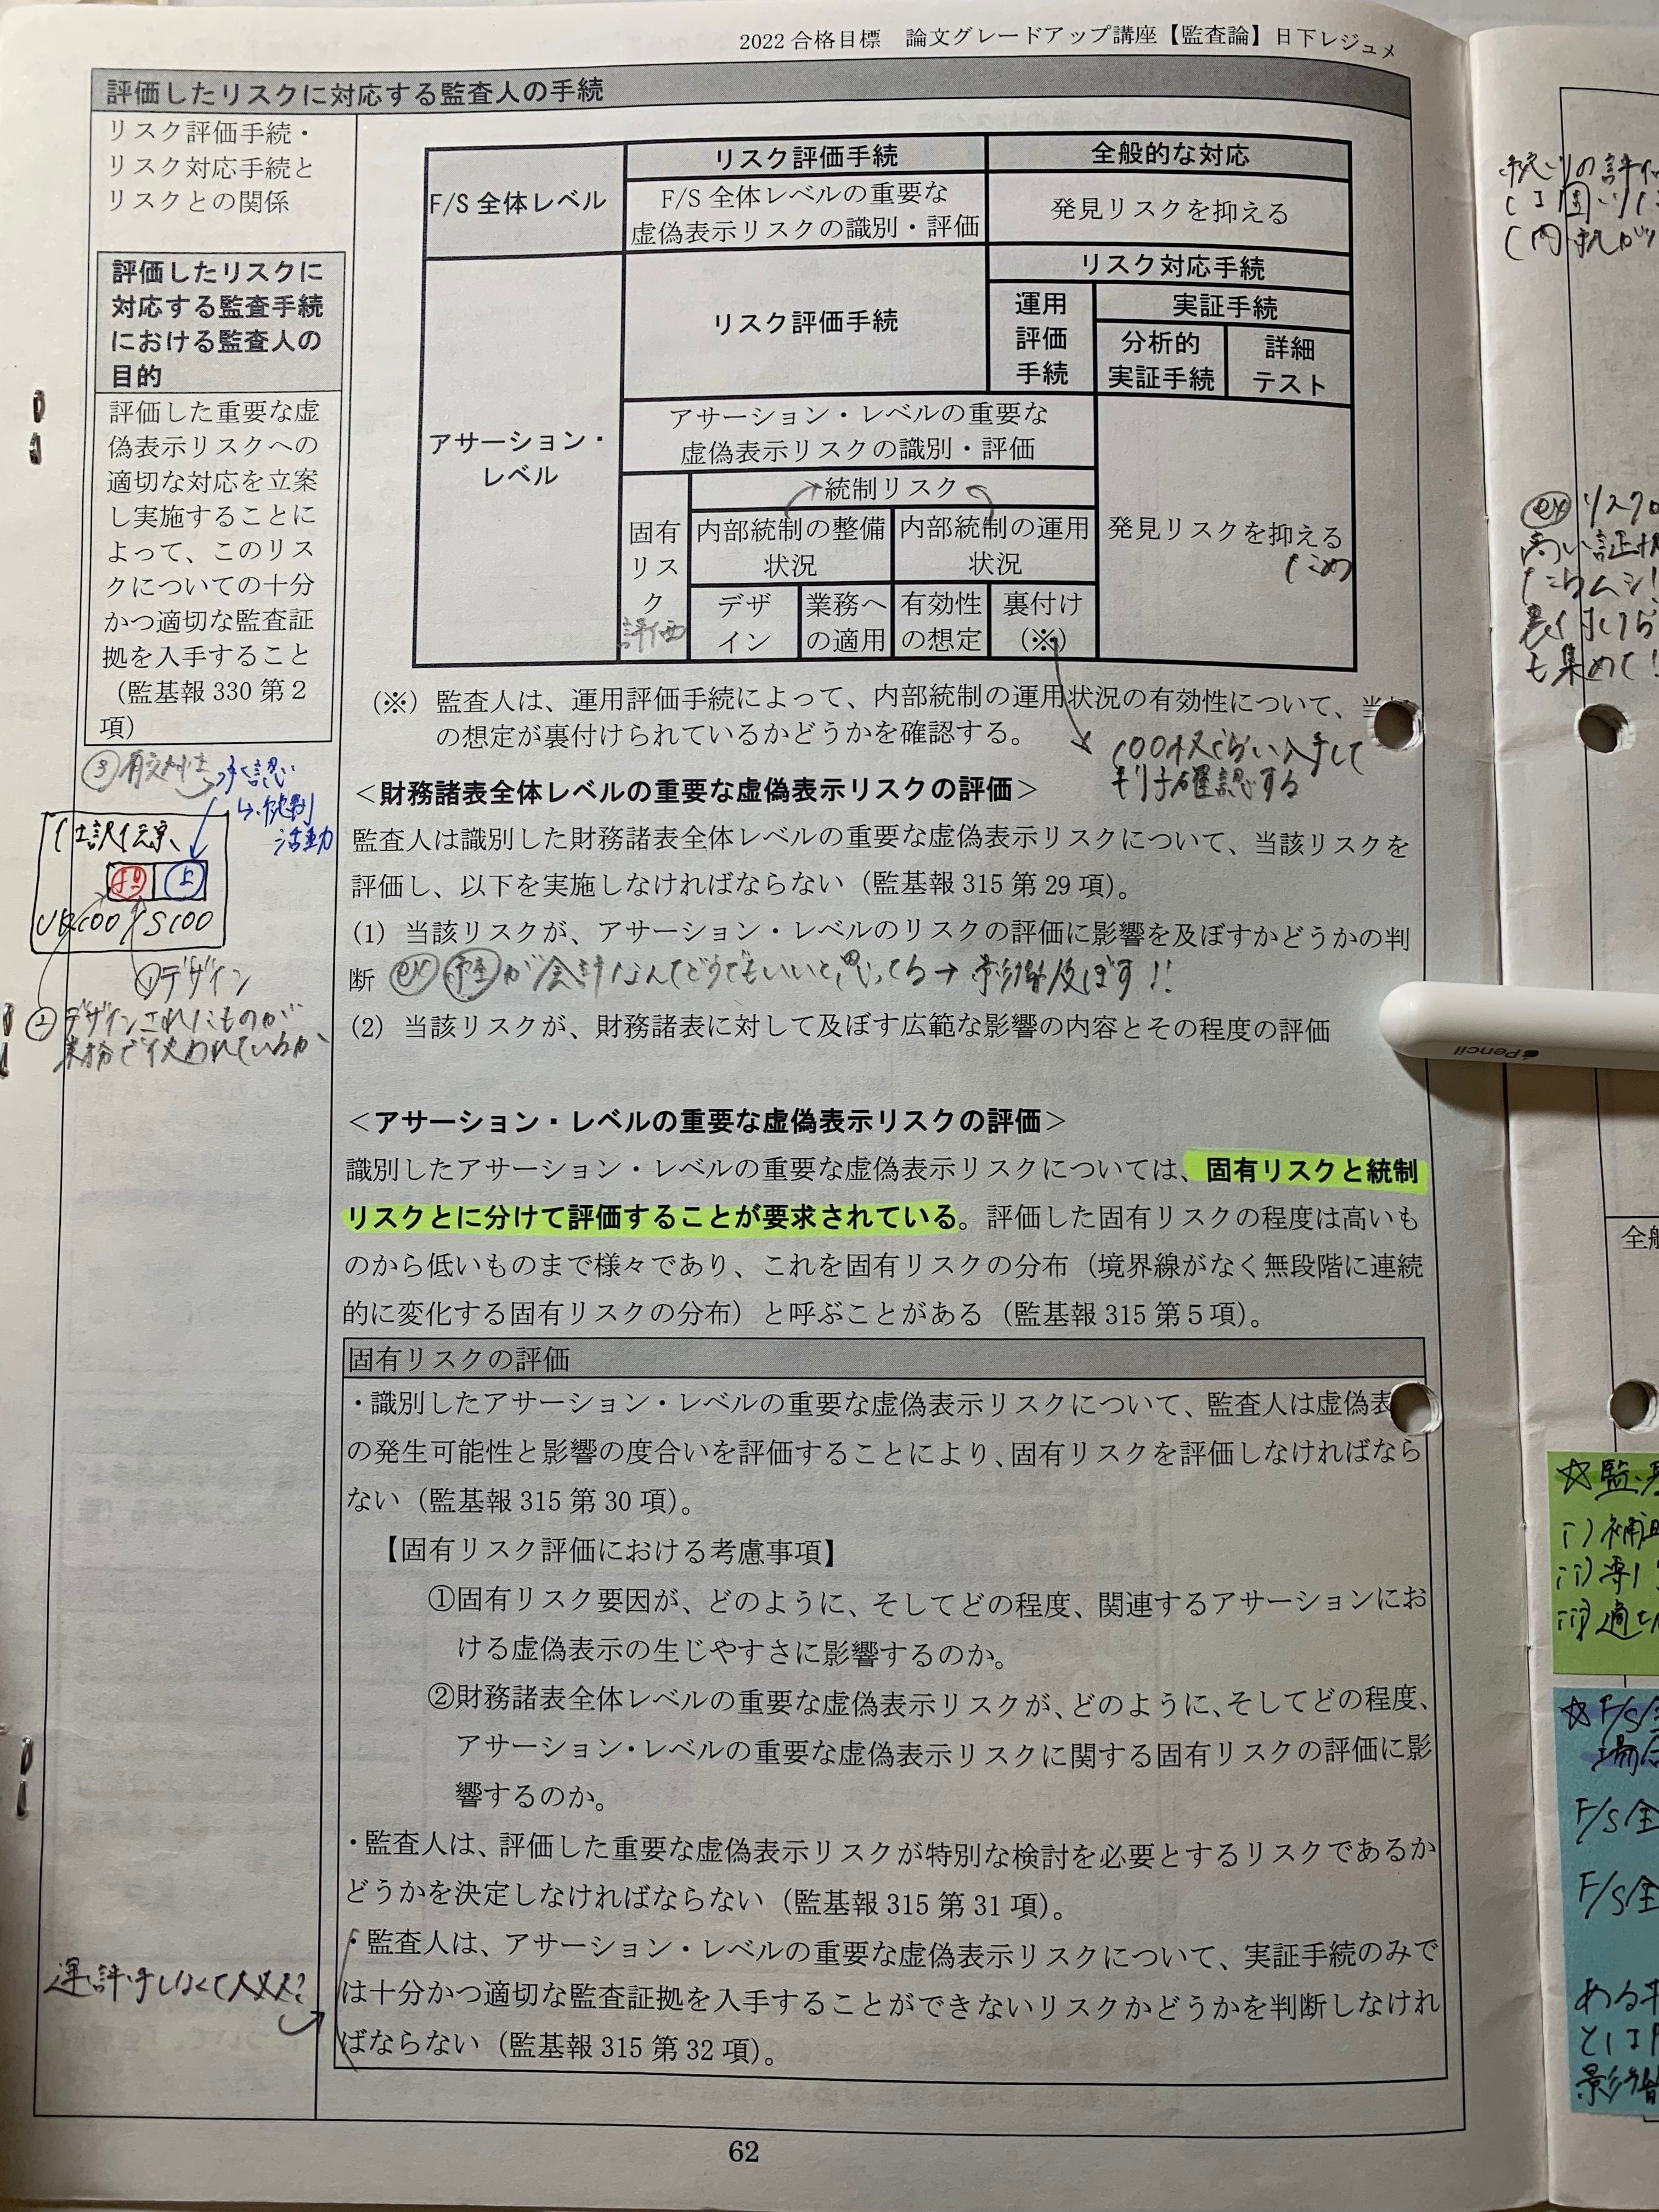 2022 合格目標　論文グレードアップ講座【監査論】日下レジュメ
評価したリスクに対応する監査人の手続
リスク評価手続・
リスク対応手続と
リスクとの関係
評価したリスクに
対応する監査手続
における監査人の
目的
評価した重要な虚
偽表示リスクへの
適切な対応を立案
し実施することに
よって、このリス
クについての十分
かつ適切な監査証
拠を入手すること
（監基報 330 第２
項）
③有効性
承認
↳統制
活動
仕訳伝票
担 上
100 / S 100
①デザイン
②デザインされたものが
業務で使われているか
F/S 全体レベル
リスク評価手続
全般的な対応
F/S 全体レベルの重要な
虚偽表示リスクの識別・評価
発見リスクを抑える
アサーション・
レベル
リスク評価手続
リスク対応手続
運用
評価
手続
実証手続
分析的
実証手続
詳細
テスト
アサーション・レベルの重要な
虚偽表示リスクの識別・評価
固有
リス
ク
評価
統制リスク
内部統制の整備
状況
内部統制の運用
状況
デザ
イン
業務へ
の適用
有効性
の想定
裏付け
（※）
発見リスクを抑える
ため
（※）監査人は、運用評価手続によって、内部統制の運用状況の有効性について、当
の想定が裏付けられているかどうかを確認する。
100枚ぐらい入手して
確認する
＜財務諸表全体レベルの重要な虚偽表示リスクの評価＞
監査人は識別した財務諸表全体レベルの重要な虚偽表示リスクについて、当該リスクを
評価し、以下を実施しなければならない（監基報 315 第 29 項）。
(1) 当該リスクが、アサーション・レベルのリスクの評価に影響を及ぼすかどうかの判
断 ex が会計なんてどうでもいいと思ってる→影響及ぼす!!
(2) 当該リスクが、財務諸表に対して及ぼす広範な影響の内容とその程度の評価
＜アサーション・レベルの重要な虚偽表示リスクの評価＞
識別したアサーション・レベルの重要な虚偽表示リスクについては、固有リスクと統制
リスクとに分けて評価することが要求されている。評価した固有リスクの程度は高いも
のから低いものまで様々であり、これを固有リスクの分布（境界線がなく無段階に連続
的に変化する固有リスクの分布）と呼ぶことがある（監基報 315 第５項）。
固有リスクの評価
・識別したアサーション・レベルの重要な虚偽表示リスクについて、監査人は虚偽表
の発生可能性と影響の度合いを評価することにより、固有リスクを評価しなければなら
ない（監基報 315 第 30 項）。
【固有リスク評価における考慮事項】
①固有リスク要因が、どのように、そしてどの程度、関連するアサーションにお
ける虚偽表示の生じやすさに影響するのか。
②財務諸表全体レベルの重要な虚偽表示リスクが、どのように、そしてどの程度、
アサーション・レベルの重要な虚偽表示リスクに関する固有リスクの評価に影
響するのか。
・監査人は、評価した重要な虚偽表示リスクが特別な検討を必要とするリスクであるか
どうかを決定しなければならない（監基報 315 第 31 項）。
・監査人は、アサーション・レベルの重要な虚偽表示リスクについて、実証手続のみで
は十分かつ適切な監査証拠を入手することができないリスクかどうかを判断しなけれ
ばならない（監基報 315 第 32 項）。
運評手しなくて大丈夫?
62
Pencil
ex リスク
高い証拠
も集めて!
全般
☆監基
i) 補助
ii) 専門
iii) 適切
☆F/S全
場合
F/S全
F/S全
ある
とは
影響